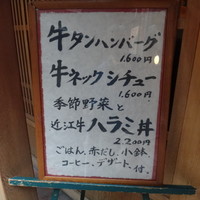 牛タンハンバーグ
1.600円
牛ネックシチュー
1.600円
季節野菜と
近江牛ハラミ丼
2.200円
ごはん、赤だし、小鉢
コーヒー、デザート、付、